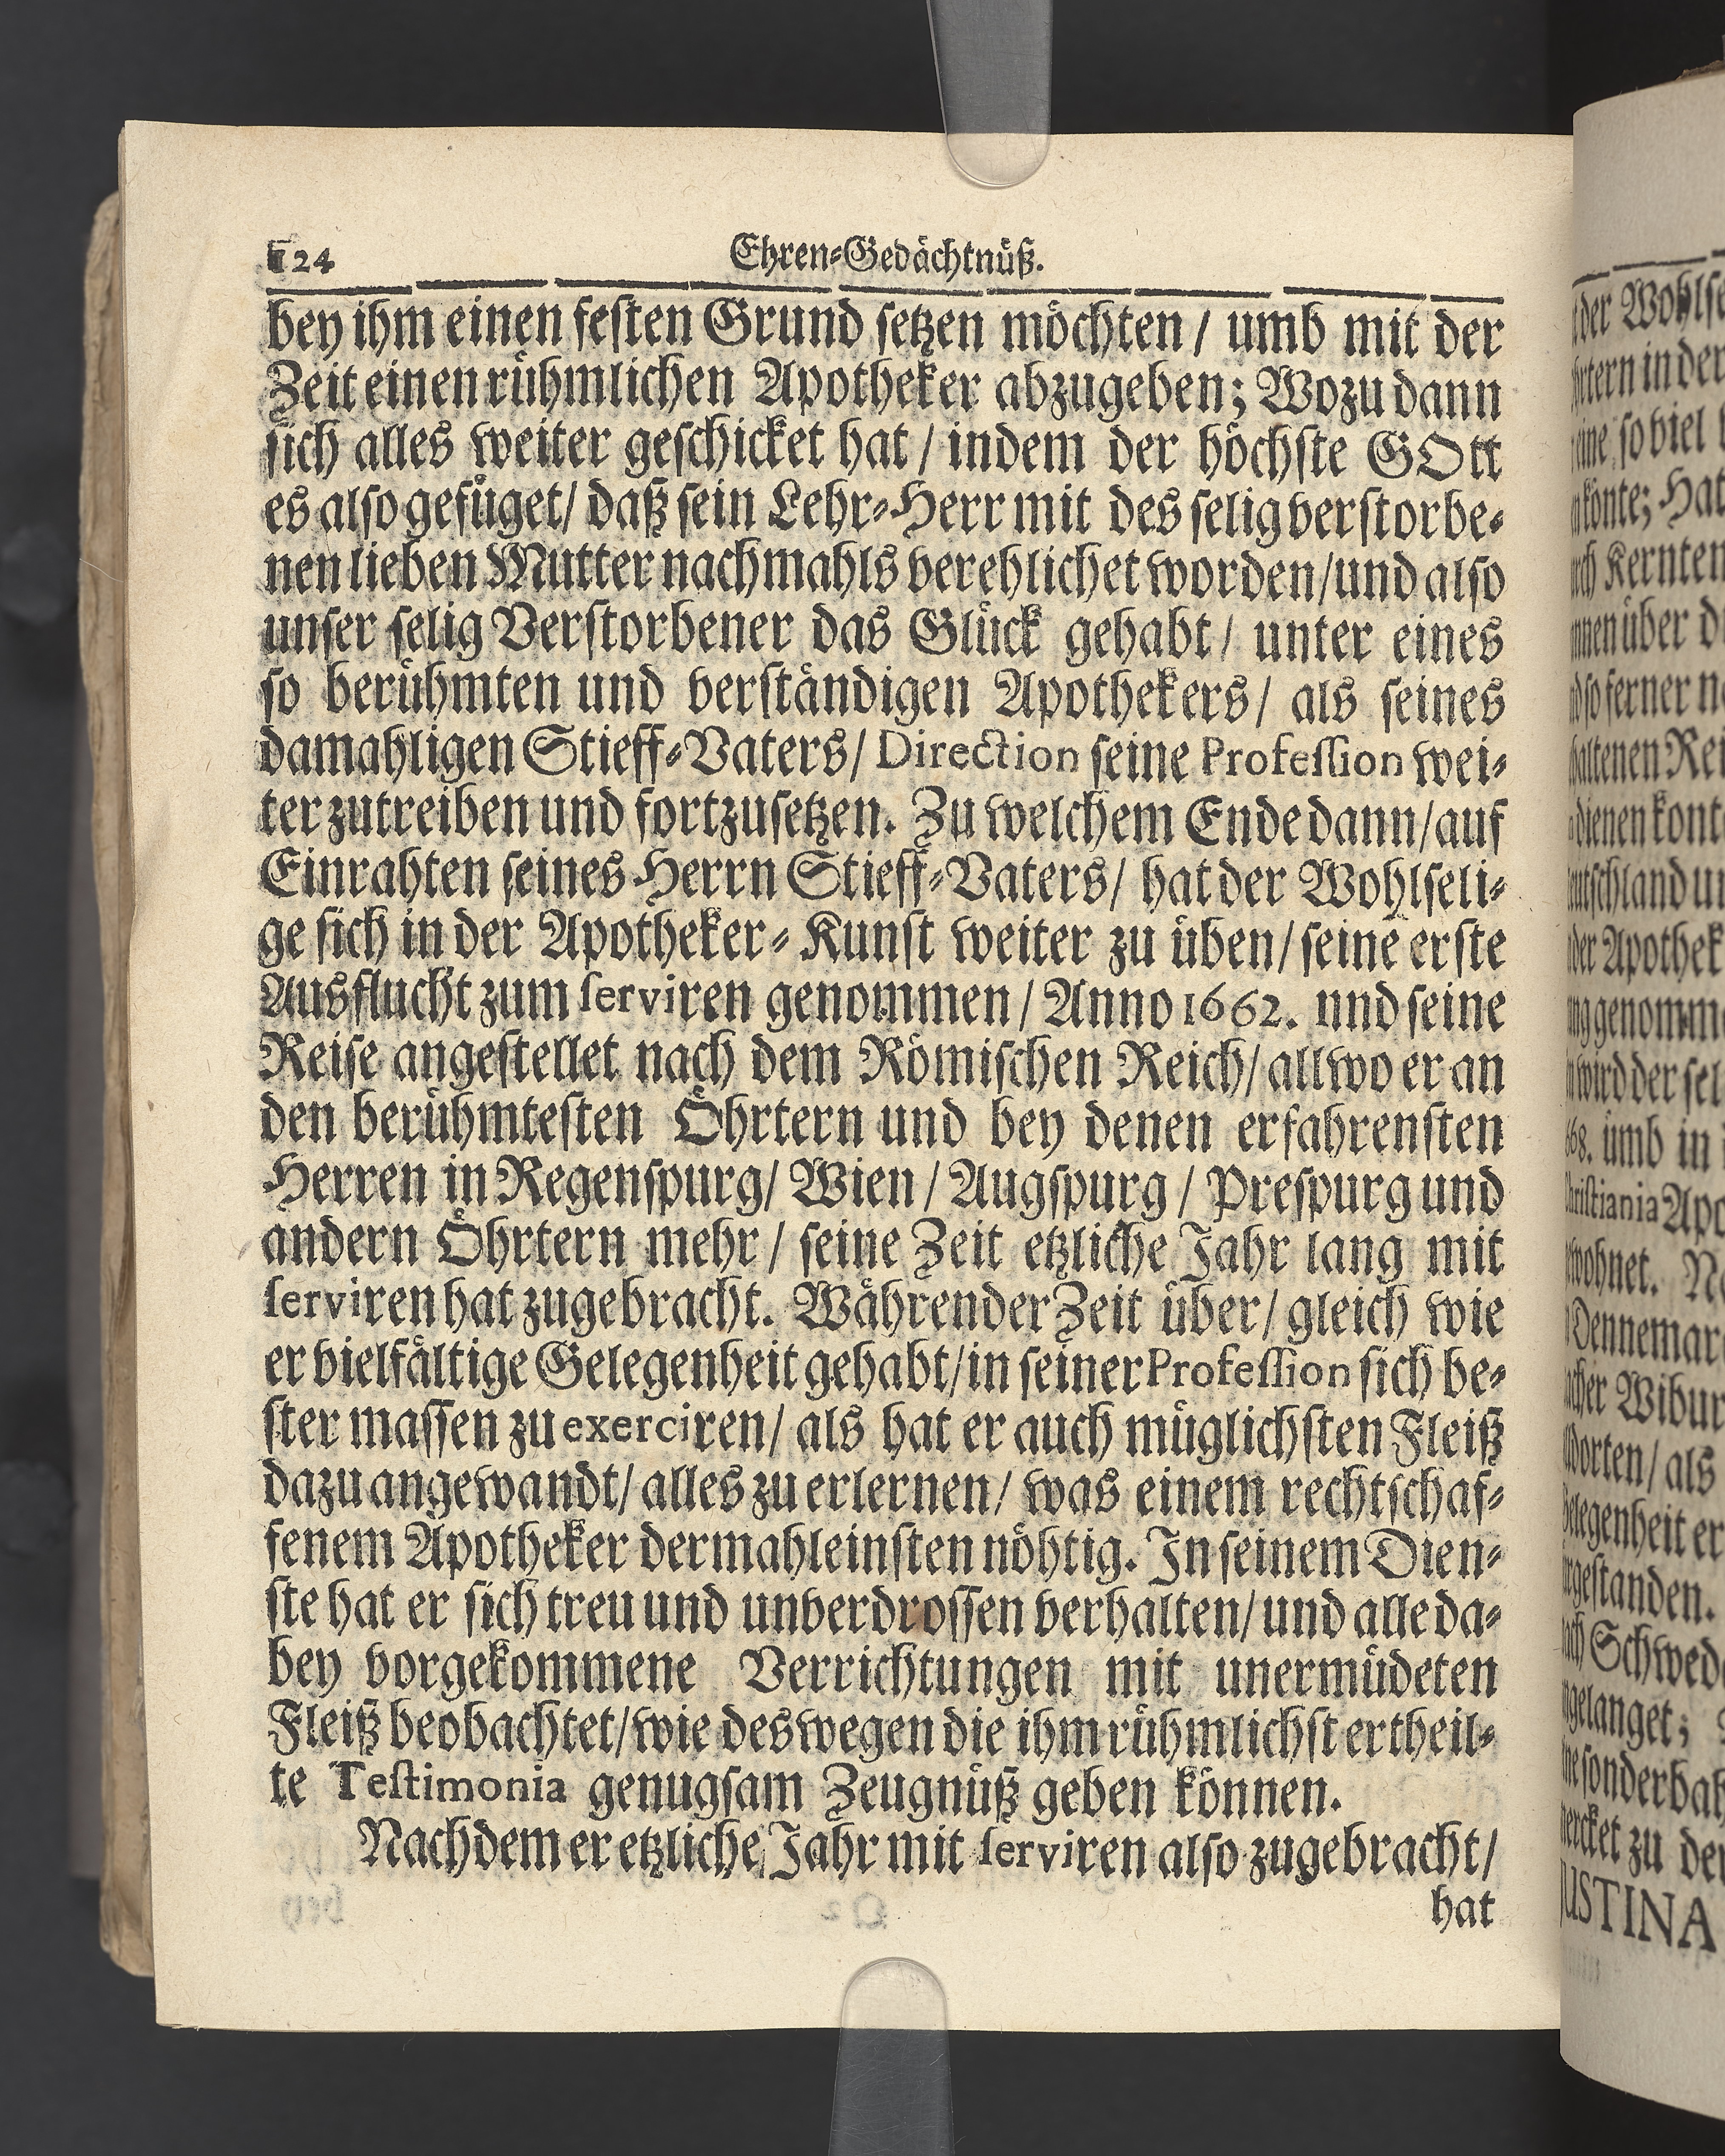 124
Ehren-Gedächtnüß.
bey ihm einen festen Grund setzen möchten / umb mit der
Zeit einen rühmlichen Apotheker abzugeben; Wozu dann
sich alles weiter geschicket hat / indem der höchste GOtt
es also gefüget / daß sein Lehr-Herr mit des selig verstorbe-
nen lieben Mutter nachmahls verehlichet worden / und also
unser selig Verstorbener das Glück gehabt / unter eines
so berühmten und verständigen Apothekers / als seines
damahligen Stieff-Vaters / Direction seine Profession wei-
ter zutreiben und fortzusetzen. Zu welchem Ende dann / auf
Einrahten seines Herrn Stieff-Vaters / hat der Wohlseli-
ge sich in der Apotheker-Kunst weiter zu üben / seine erste
Ausflucht zum serviren genommen / Anno 1662. nnd seine
Reise angestellet nach dem Römischen Reich / allwo er an
den berühmtesten Öhrtern und bey denen erfahrensten
Herren in Regenspurg / Wien / Augspurg / Prespurg und
andern Öhrtern mehr / seine Zeit etzliche Jahr lang mit
serviren hat zugebracht. Währender Zeit über / gleich wie
er vielfältige Gelegenheit gehabt / in seiner Profession sich be-
ster massen zu exerciren / als hat er auch müglichsten Fleiß
dazu angewandt / alles zu erlernen / was einem rechtschaf-
fenem Apotheker dermahleinsten nöhtig. In seinem Dien-
ste hat er sich treu und unverdrossen verhalten / und alle da-
bey vorgekommene Verrichtungen mit unermüdeten
Fleiß beobachtet / wie deswegen die ihm rühmlichst ertheil-
te Testimonia genugsam Zeugnüß geben können.
Nachdem er etzliche Jahr mit serviren also zugebracht /
hat
der
in der
so viel
könte; Hat
Kernten
über
so ferner
dienen
genomm
wird der
umb in
Christiania
Dennemar
Wibur
als
Gelegenheit er
gestanden.
Schwed
gelanget;
zu
JUSTINA